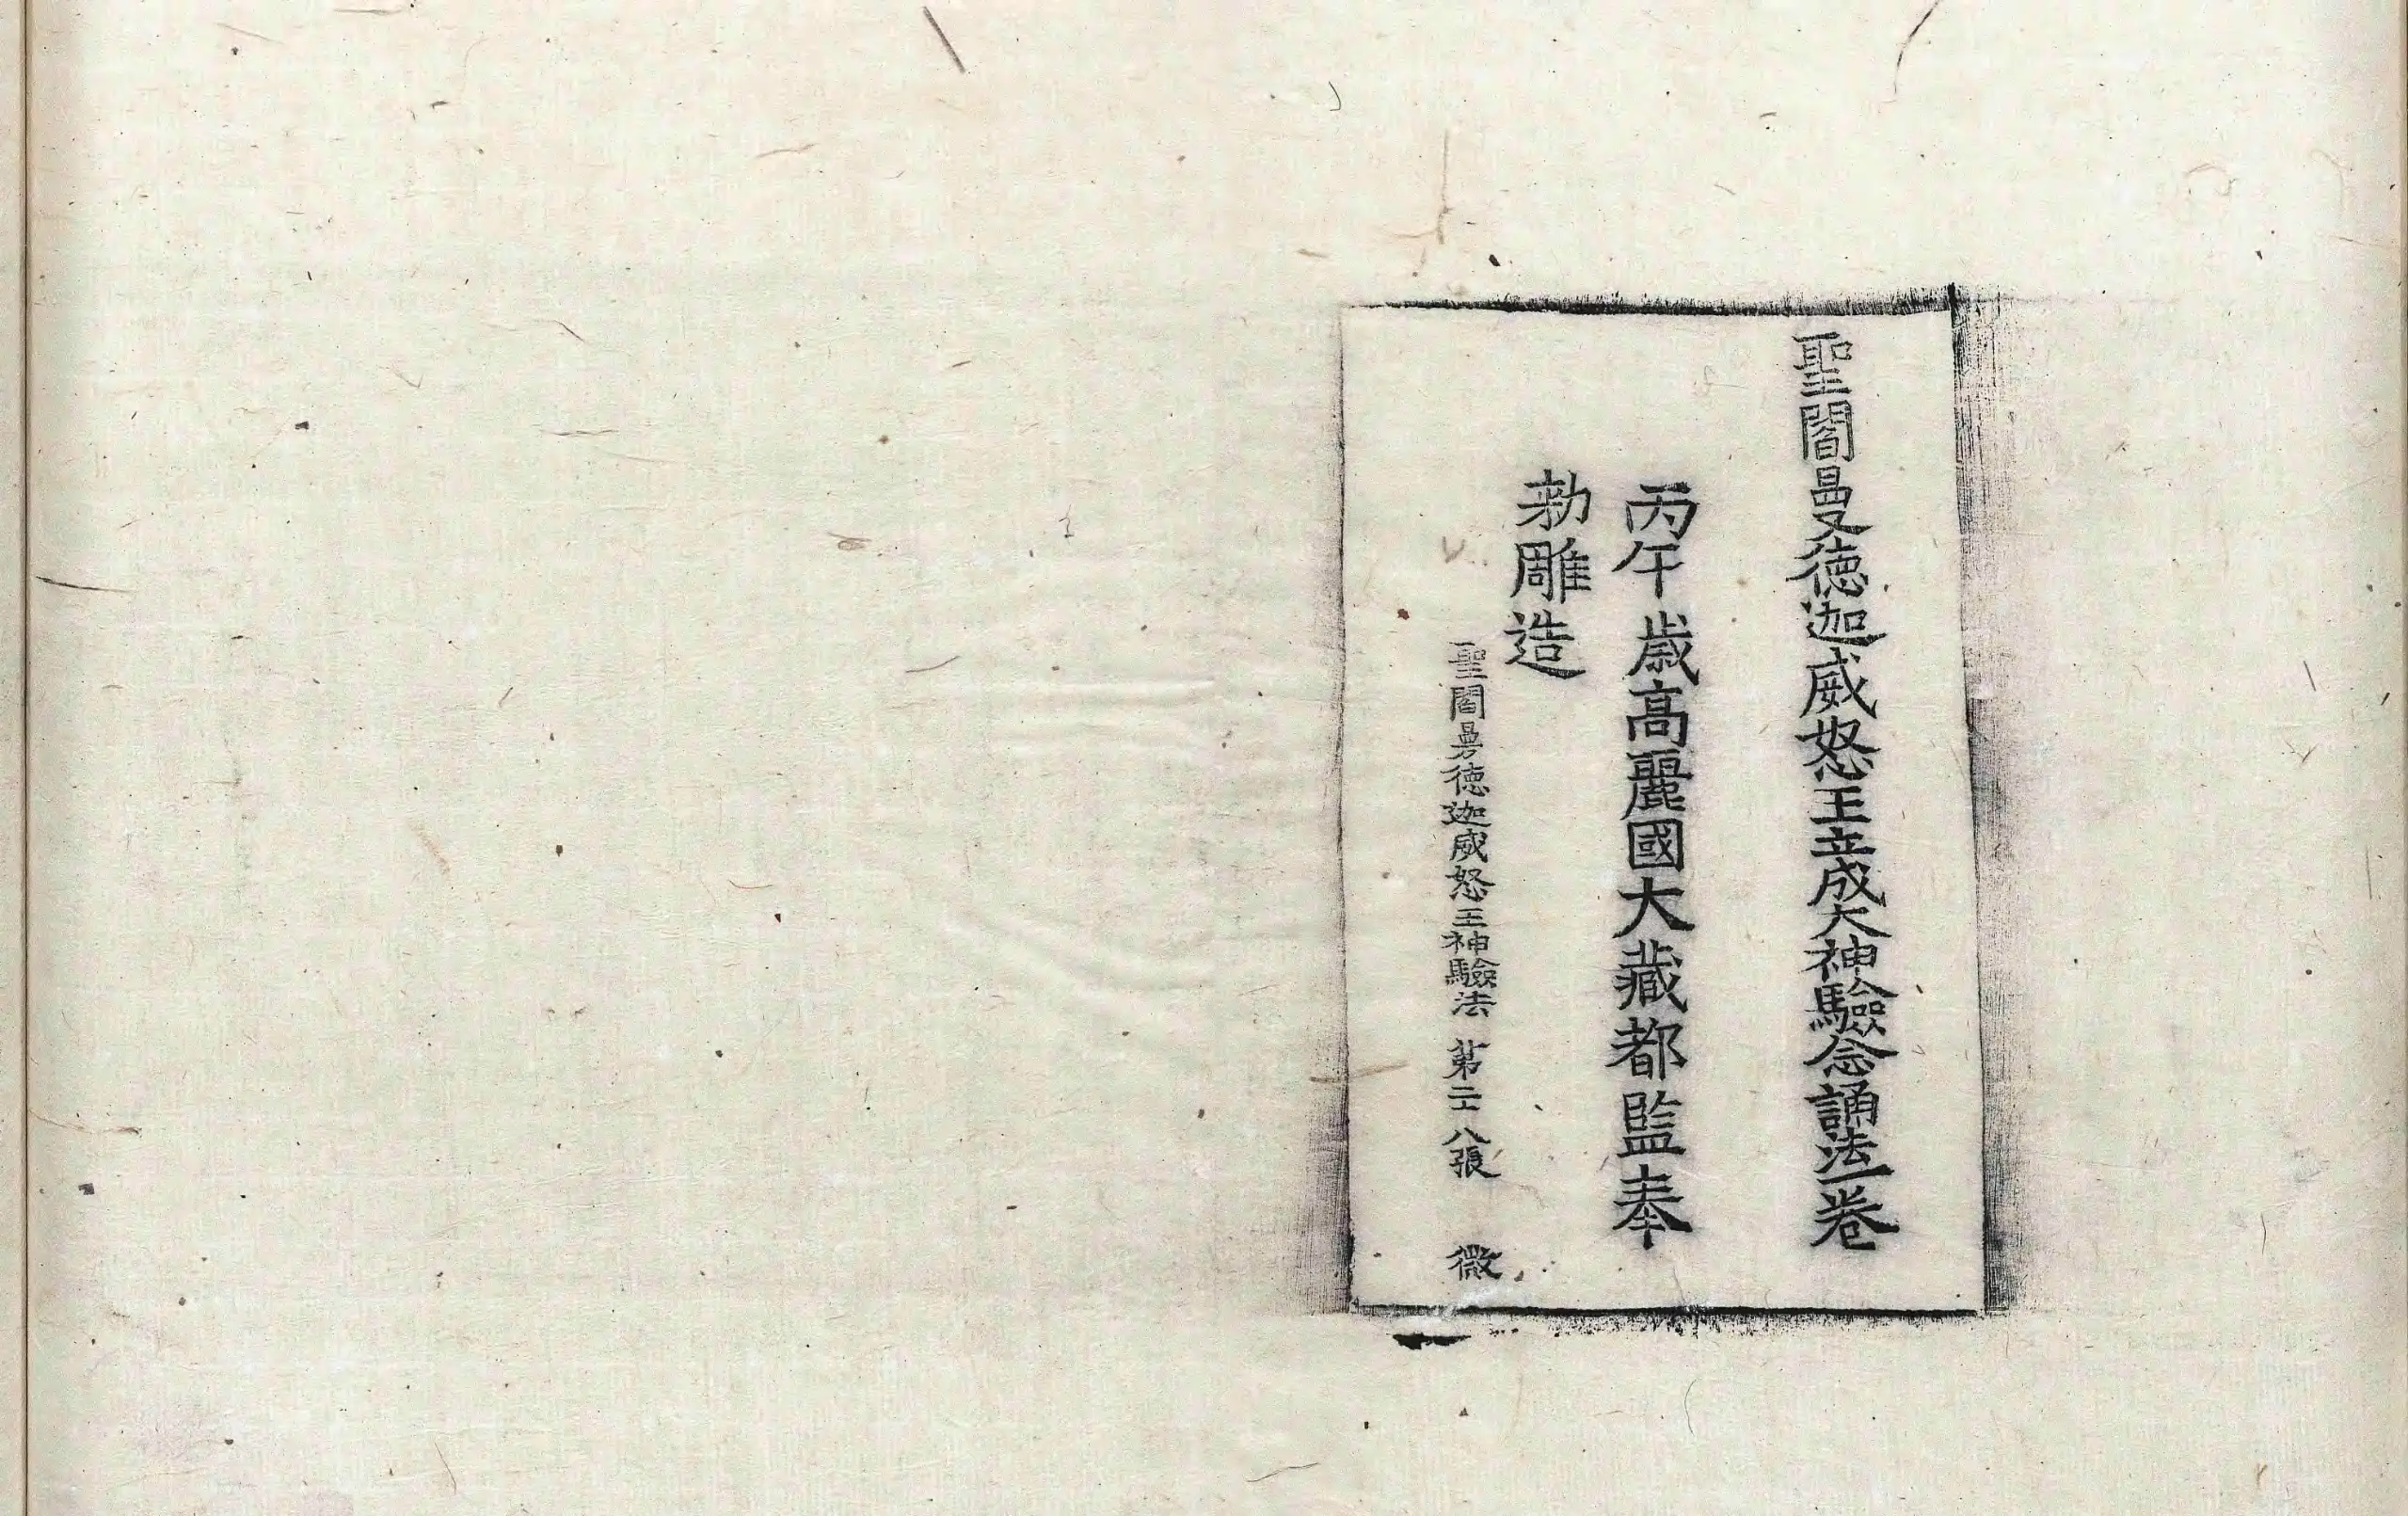 聖閻曼徳迦威怒王立成大神驗念誦法一卷
丙午歳高麗國大藏都監奉
勑雕造
聖閻曼徳迦威怒王神驗法 第二十八張 微